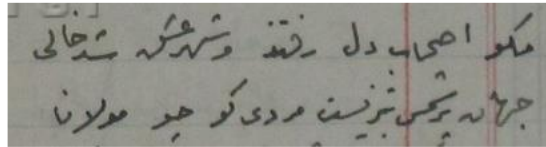 مگو اصحاب دل رفتند و شهر عشق شد خالی
جهان پر شمس تبریزست مردی کو چو مولانا